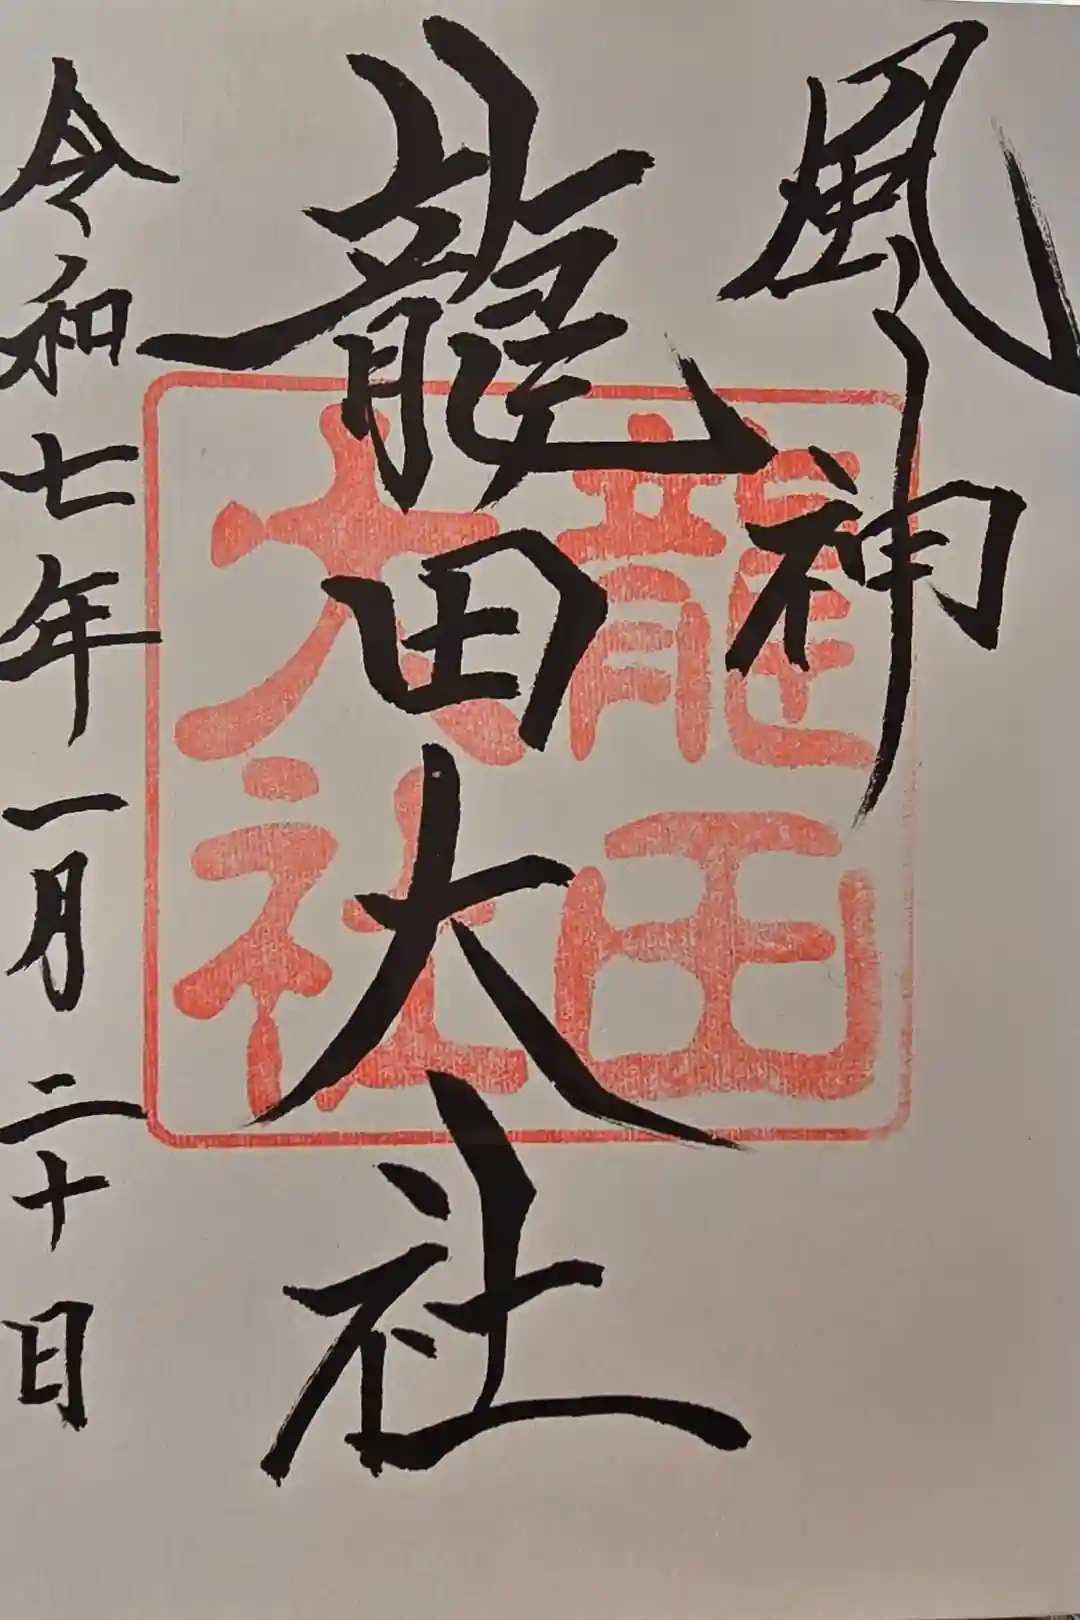 風神
龍田大社
令和七年一月二十日
龍田
大社